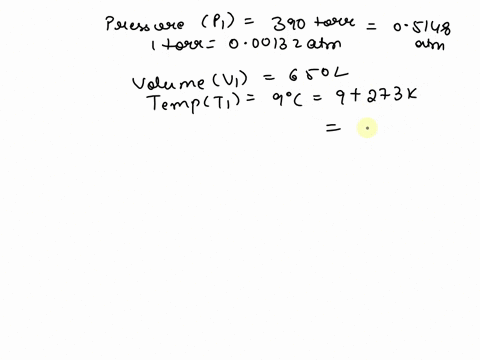 Pressure (P1) = 390 torr = 0.5148 atm
1 torr = 0.00132 atm
Volume (V1) = 650L
Temp(T1) = 9°C = 9+273K
=